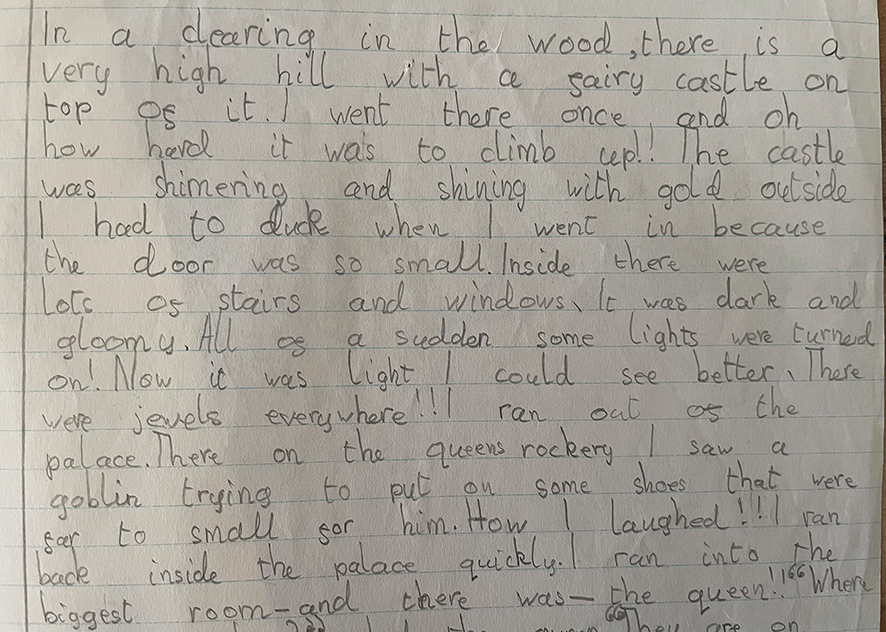 In a clearing in the wood, there is a
very high hill with a fairy castle on
top of it. I went there once and oh
how hard it was to climb up!! The castle
was shimering and shining with gold outside
I had to duck when I went in because
the door was so small. Inside there were
lots of stairs and windows. It was dark and
gloomy. All of a sudden some lights were turned
on! Now it was light I could see better. There
were jewels everywhere!!! I ran out of the
palace. There on the queens rockery I saw a
goblin trying to put on some shoes that were
far to small for him. How I laughed!!! I ran
back inside the palace quickly. I ran into the
biggest room-and there was-the queen!! "Where
"They are on